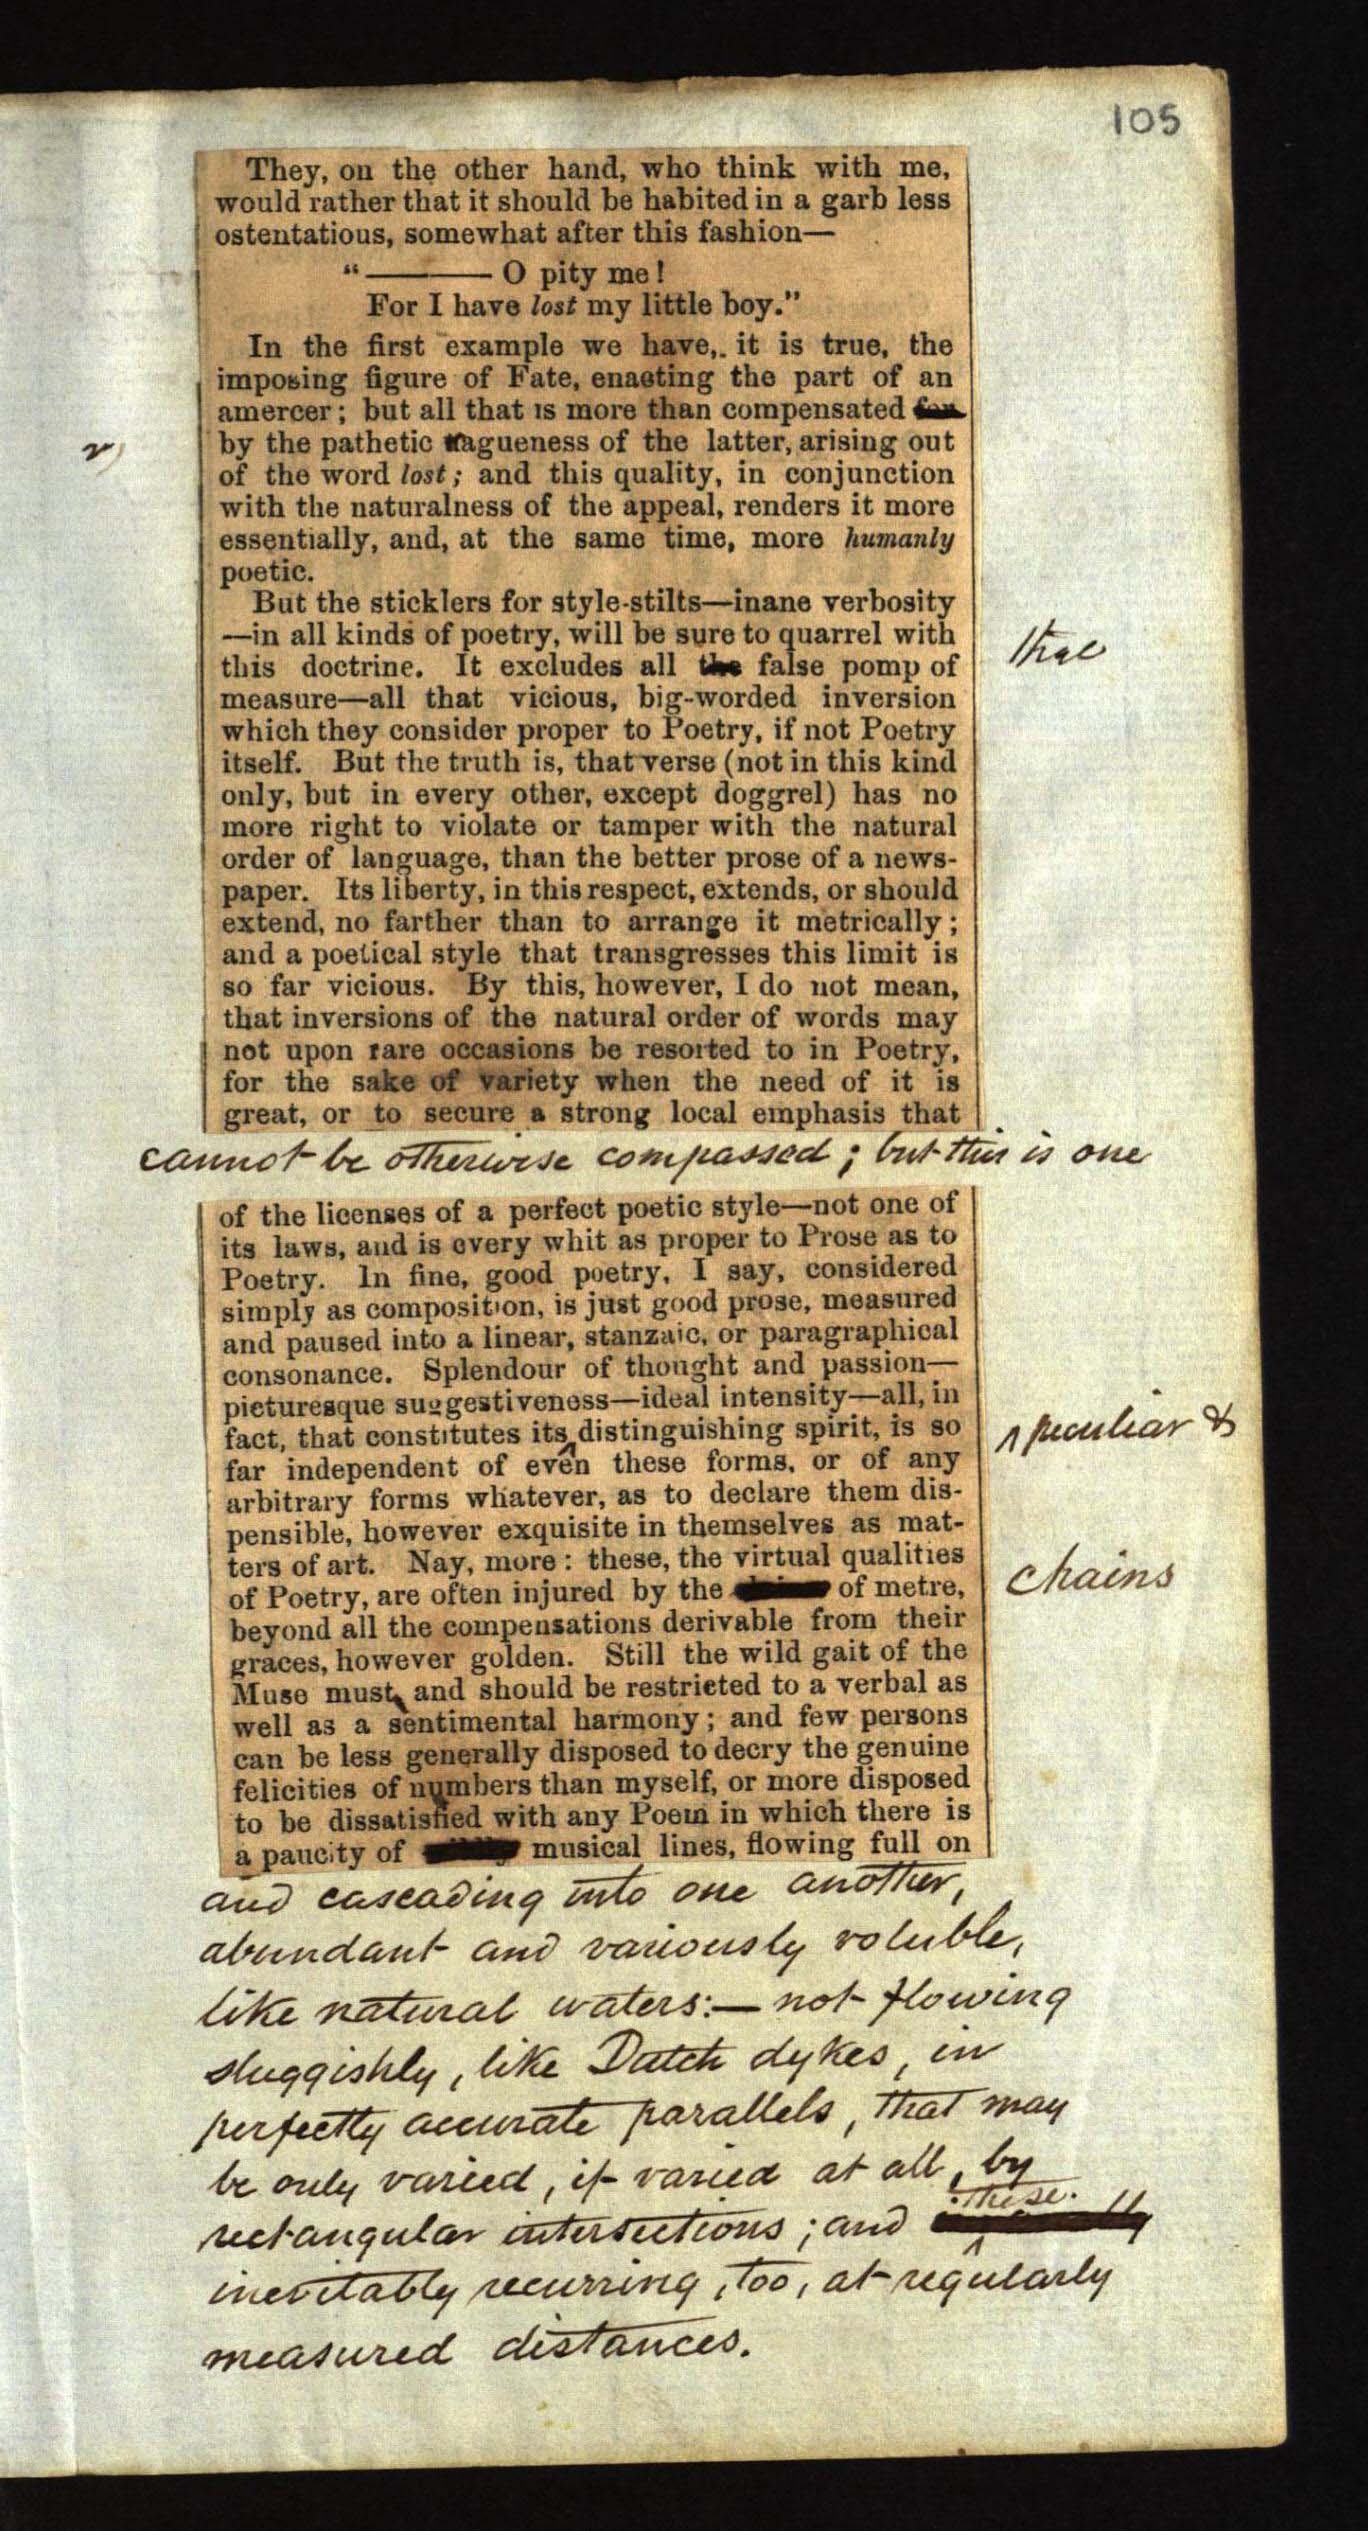 105
They, on the other hand, who think with me,
would rather that it should be habited in a garb less
ostentatious, somewhat after this fashion—
“———— O pity me!
For I have lost my little boy.”
In the first example we have, it is true, the
imposing figure of Fate, enacting the part of an
amercer; but all that is more than compensated for
v/
by the pathetic vagueness of the latter, arising out
of the word lost; and this quality, in conjunction
with the naturalness of the appeal, renders it more
essentially, and, at the same time, more humanly
poetic.
But the sticklers for style-stilts—inane verbosity
—in all kinds of poetry, will be sure to quarrel with
this doctrine. It excludes all the false pomp of
that
measure—all that vicious, big-worded inversion
which they consider proper to Poetry, if not Poetry
itself. But the truth is, that verse (not in this kind
only, but in every other, except doggrel) has no
more right to violate or tamper with the natural
order of language, than the better prose of a news-
paper. Its liberty, in this respect, extends, or should
extend, no farther than to arrange it metrically;
and a poetical style that transgresses this limit is
so far vicious. By this, however, I do not mean,
that inversions of the natural order of words may
not upon rare occasions be resorted to in Poetry,
for the sake of variety when the need of it is
great, or to secure a strong local emphasis that
cannot be otherwise compassed; but this is one
of the licenses of a perfect poetic style—not one of
its laws, and is every whit as proper to Prose as to
Poetry. In fine, good poetry, I say, considered
simply as composition, is just good prose, measured
and paused into a linear, stanzaic, or paragraphical
consonance. Splendour of thought and passion—
picturesque suggestiveness—ideal intensity—all, in
fact, that constitutes its distinguishing spirit, is so
^ peculiar &
far independent of even these forms, or of any
arbitrary forms whatever, as to declare them dis-
pensible, however exquisite in themselves as mat-
ters of art. Nay, more: these, the virtual qualities
of Poetry, are often injured by the of metre,
chains
beyond all the compensations derivable from their
graces, however golden. Still the wild gait of the
Muse must, and should be restricted to a verbal as
well as a sentimental harmony; and few persons
can be less generally disposed to decry the genuine
felicities of numbers than myself, or more disposed
to be dissatisfied with any Poem in which there is
a paucity of musical lines, flowing full on
and cascading into one another,
abundant and variously voluble,
like natural waters:—not flowing
sluggishly, like Dutch dykes, in
perfectly accurate parallels, that may
be only varied, if varied at all, by
these
rectangular intersections; and
inevitably recurring, too, at regularly
measured distances.